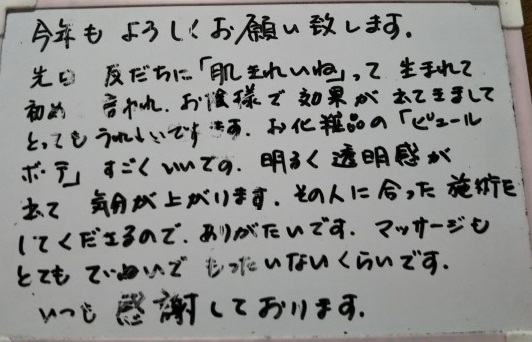 今年も よろしくお願い致します。
先日 友だちに「肌きれいね」って 生まれて
初め 言われ、お陰様で 効果が 出てきまして
とってもうれしいです お化粧品の「ピュール
ボーテ」すごくいいでの。明るく透明感が
出て 気分が上がります。その人に合った 施術を
してくださるので、ありがたいです。マッサージも
とても ていねいで もったいないくらいです。
いつも 感謝しております。